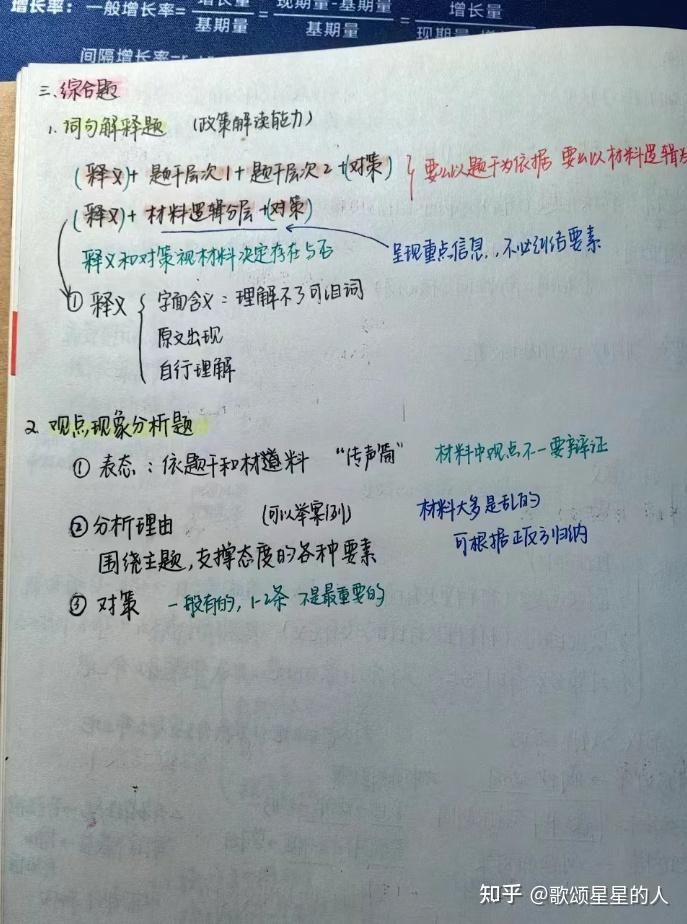 增长率：一般增长率=增长量/基期量=现期量-基期量/基期量=增长量/现期量-增长
间隔增长率=r
三.综合题
1. 词句解释题 （政策解读能力）
（释义）+ 题干层次1 + 题干层次2 +（对策） { 要么以题干为依据 要么以材料逻辑为
（释义）+ 材料逻辑分层 +（对策）
释义和对策视材料决定存在与否 呈现重点信息，不必纠结要素
① 释义 { 字面含义：理解不了可沮词
原文出现
自行理解
2. 观点现象分析题
① 表态：依题干和材料 “传声筒” 材料中观点不一要辩证
② 分析理由 (可以举案例) 材料大多是乱的
可根据正反方归纳
围绕主题，支撑态度的各种要素
③ 对策 一般有的，1-2条 不是最重要的
知乎 @歌颂星星的人